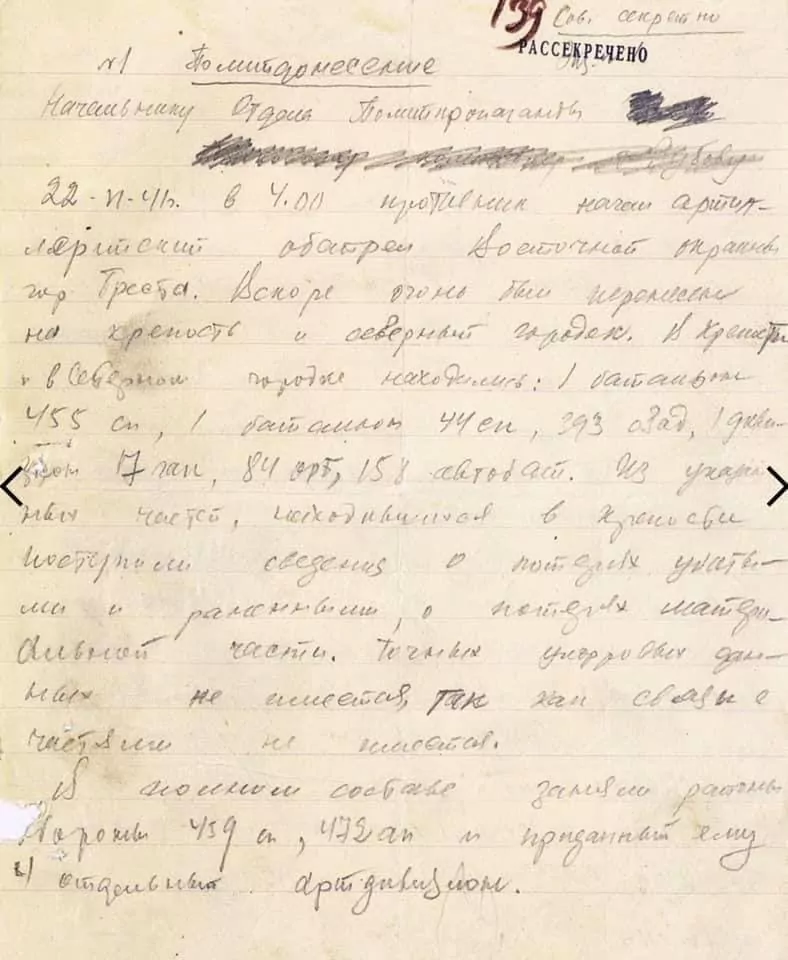 139 Сов. секретно
РАССЕКРЕЧЕНО
№1 Политдонесение
Начальнику Отдела Политпропаганды
22-VI-41г. в 4.00 противник начал артил-
лерийский обстрел Восточной окраины
гор Бреста. Вскоре огонь был перенесен
на крепость и северный городок. В Крепости
и в Северном городке находились: 1 батальон
455 сп, 1 батальон 44 сп, 393 оЗад, 1 диви-
зион 17 гап, 84 орб, 158 автобат. Из указан
ных частей, находившихся в крепости
поступили сведения о потерях убиты-
ми и ранеными, о потерях матери-
альной части. Точных цифровых дан-
ных не имеется, так как связи с
частями не имеется.
В полном составе заняли районы
обороны 459 сп, 472 ап и приданный ему
отдельный артдивизион.